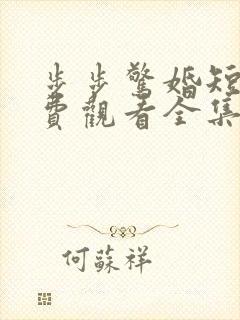 步步驚婚短
費觀看全集
何蘇祥